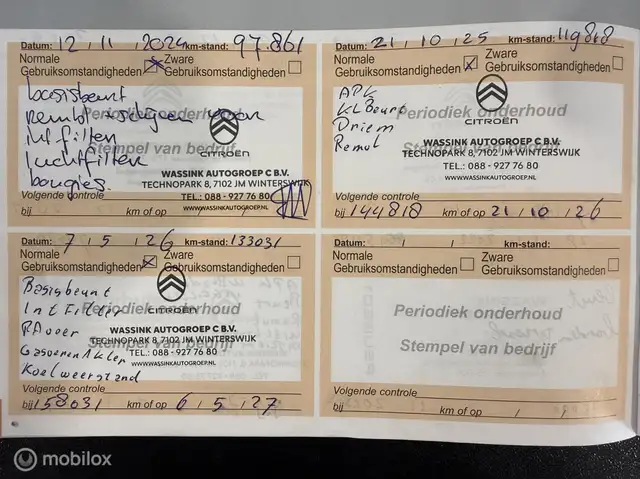 Datum: 12 / 11 / 2024 km-stand: 97.861
Normale Gebruiksomstandigheden
Zware Gebruiksomstandigheden
basisbeurt
Periodiek onderhoud
voor
int filter
luchtfilter
bougies.
Stempel van bedrijf
CITROËN
WASSINK AUTOGROEP C B.V.
TECHNOPARK 8, 7102 JM WINTERSWIJK
TEL.: 088 - 927 76 80
WWW.WASSINKAUTOGROEP.NL
Volgende controle
bij km of op / /
Datum: 21 / 10 / 25 km-stand: 119818
Normale Gebruiksomstandigheden
Zware Gebruiksomstandigheden
APK
KL Beurt
Driem
Remvl
Periodiek onderhoud
CITROËN
Stempel van bedrijf
WASSINK AUTOGROEP C B.V.
TECHNOPARK 8, 7102 JM WINTERSWIJK
TEL.: 088 - 927 76 80
WWW.WASSINKAUTOGROEP.NL
Volgende controle
bij 144818 km of op 21 / 10 / 26
Datum: 7 / 5 / 26 km-stand: 133031
Normale Gebruiksomstandigheden
Zware Gebruiksomstandigheden
Basisbeurt
Int Filter
Periodiek onderhoud
CITROËN
Koelweerstand
WASSINK AUTOGROEP C B.V.
TECHNOPARK 8, 7102 JM WINTERSWIJK
Stempel van bedrijf
TEL.: 088 - 927 76 80
WWW.WASSINKAUTOGROEP.NL
Volgende controle
bij 158031 km of op 6 / 5 / 27
Datum: / / km-stand:
Normale Gebruiksomstandigheden
Zware Gebruiksomstandigheden
Periodiek onderhoud
Stempel van bedrijf
Volgende controle
bij km of op / /
mobilox